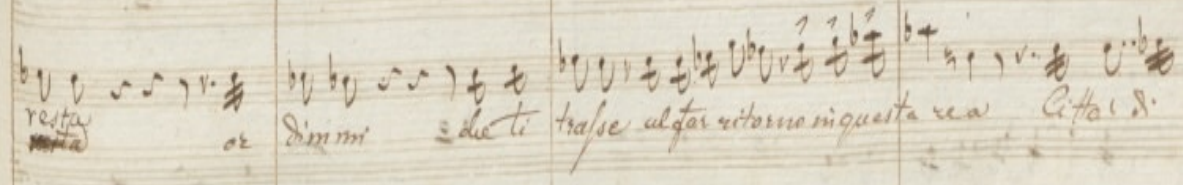 resta
or dimmi = che ti trasse al far ritorno in questa rea Citta? di